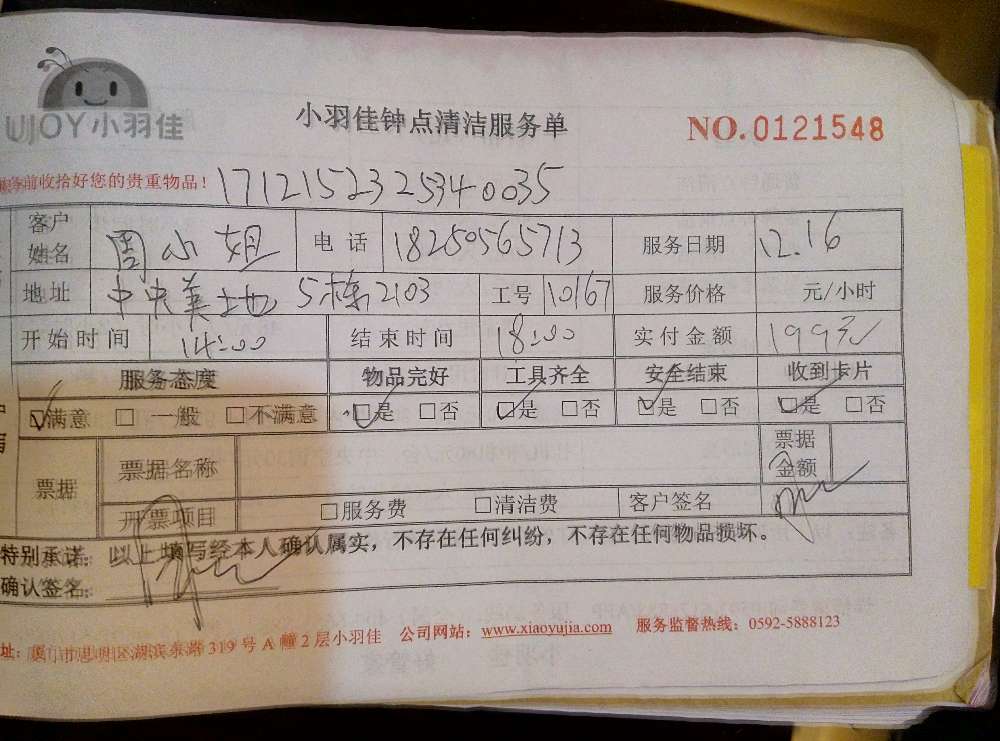 UJOY小羽佳
小羽佳钟点清洁服务单
NO.0121548
务前收拾好您的贵重物品！
1712152325340035
客户姓名 周小姐 电话 18250565713 服务日期 12.16
地址 中央美地 5栋2103 工号 10167 服务价格 元/小时
开始时间 14:00 结束时间 18:00 实付金额 199元
服务态度 物品完好 工具齐全 安全结束 收到卡片
☑满意 □一般 □不满意 ☑是 □否 ☑是 □否 ☑是 □否 ☑是 □否
票据 票据名称 票据金额
开票项目 □服务费 □清洁费 客户签名
特别承诺：以上填写经本人确认属实，不存在任何纠纷，不存在任何物品损坏。
确认签名：
址：厦门市思明区湖滨东路319号A幢2层小羽佳 公司网站：www.xiaoyujia.com 服务监督热线：0592-5888123